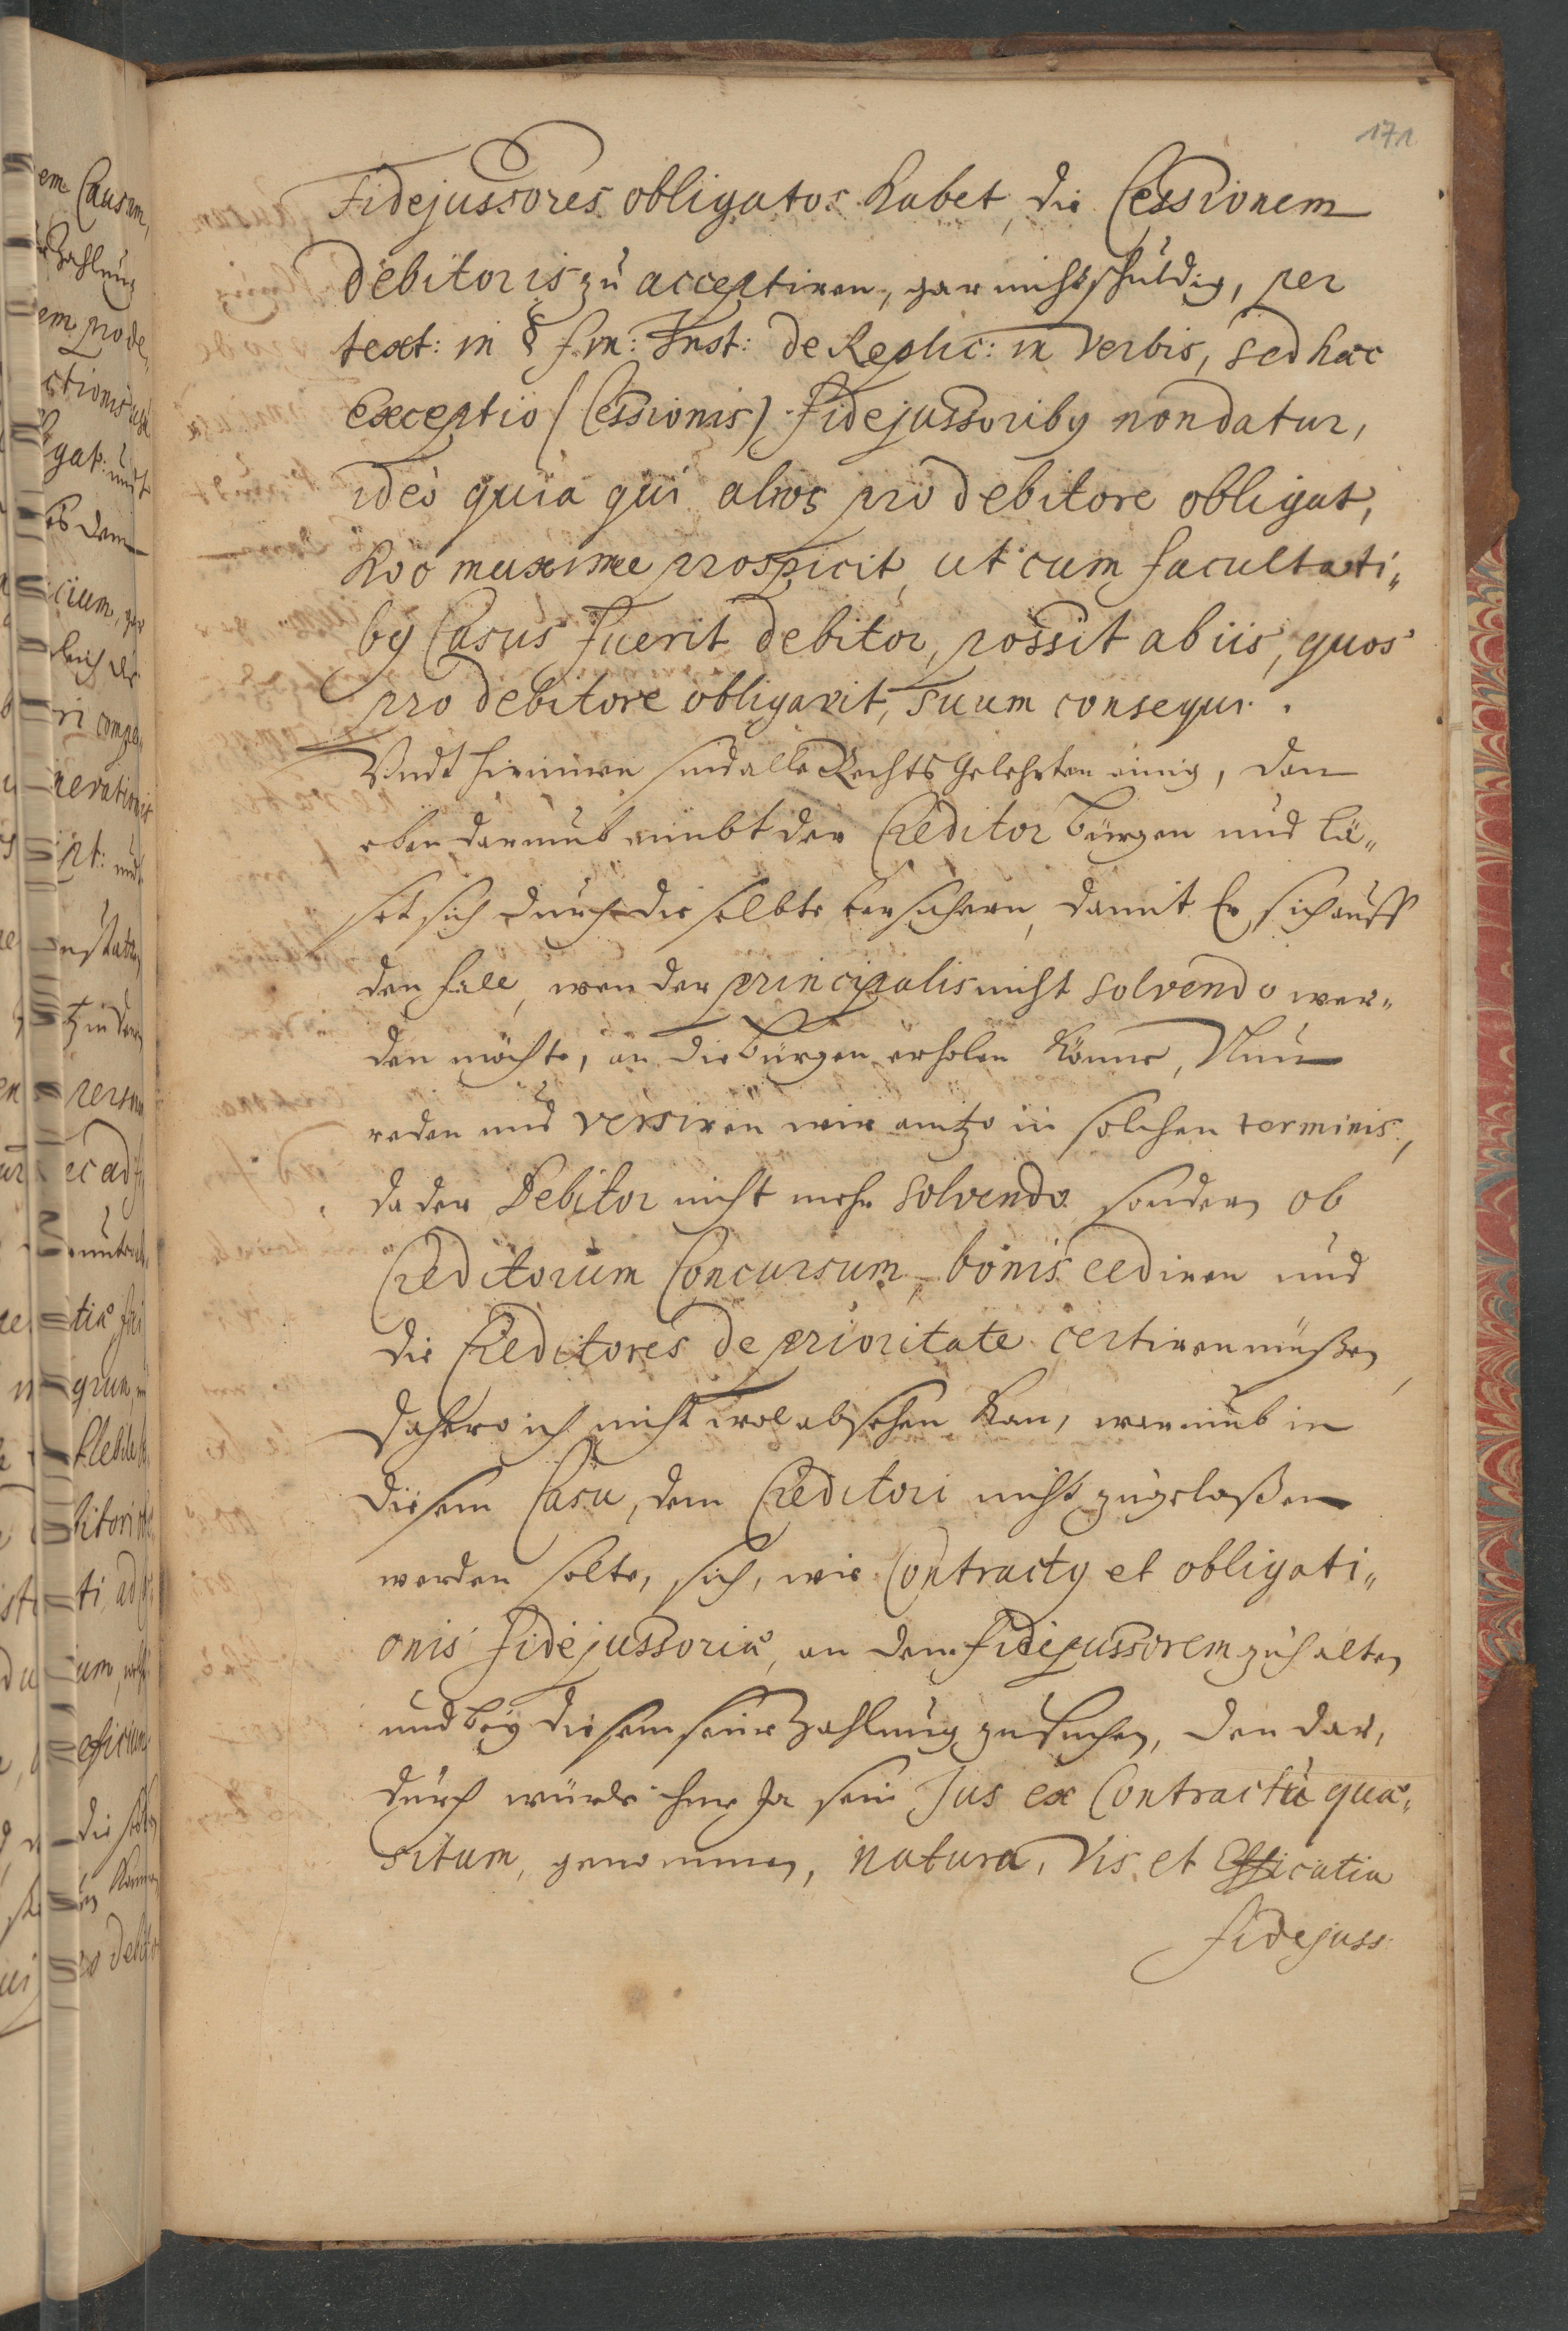 171
Fidejussores obligatos habet, die Cessionem
debitoris zu acceptiren, gar nicht schuldig, per
text: in § fin: Inst: de Replic: in verbis, sed hæc
exceptio (Cessionis) fidejussoribꝯ non datur,
ideo quia qui alios pro debitore obligat,
hoc maxime prospicit, ut cum facultati„
bꝯ Casus fuerit debitor, possit ab iis, quos
pro debitore obligavit, suum consequi.
Vndt hierinnen sind alle Rechts Gelehrten einig, den
eben darumb nimbt der Creditor bürgen und lä„
set sich durch dieselbte versichern, damit Er sich auff
den fall, wen der principalis nicht solvendo wer„
den möchte, an die bürgen erholen könne, Nun
reden und versiren wir anitzo in solchen terminis,
da der Debitor nicht mehr solvendo sondern ob
Creditorum Concursum, bonis cediren und
die Creditores de prioritate certiren müßen,
dahero ich nicht wol absehen kan, warumb in
diesem Casu, dem Creditori nicht zugelaßen
werden solte, sich, wie Contractꝯ et obligati„
onis fidejussoriæ, an dem fidejussorem zuhalten
und bey diesem seine Zahlung zu suchen, den da„
durch würde ihme Ja sein Jus ex Contractu quæ„
situm, genommen, natura, vis et Efficatia
fidejuss